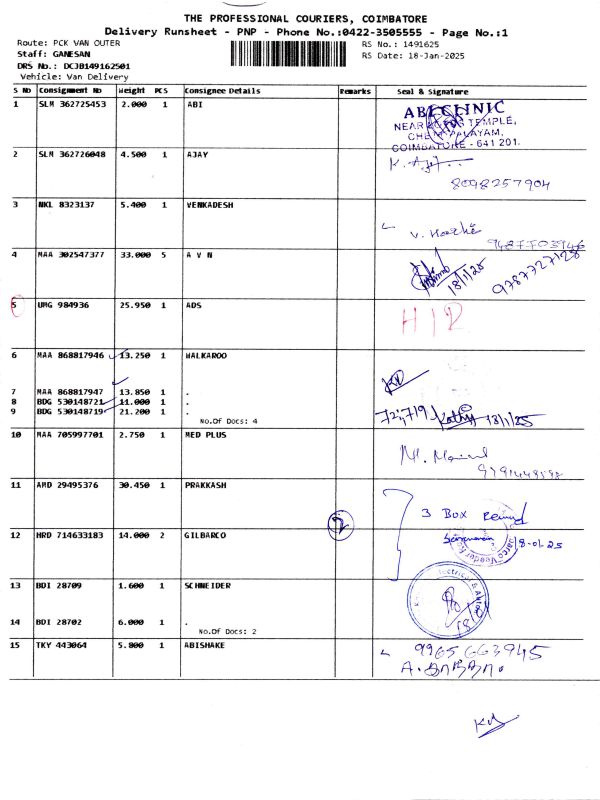 THE PROFESSIONAL COURIERS, COIMBATORE
Delivery Runsheet - PNP - Phone No.:0422-3505555 - Page No.:1
Route: PCK VAN OUTER
RS No.: 1491625
Staff: GANESAN
RS Date: 18-Jan-2025
DRS No.: DCJB149162501
Vehicle: Van Delivery
S No Consignment No Weight PCS Consignee Details Remarks Seal & Signature
1 SLM 362725453 2.000 1 ABI
ABI CLINIC
NEAR TEMPLE,
COIMBATORE - 641 201.
2 SLM 362726048 4.500 1 AJAY
8098257904
3 NKL 8323137 5.400 1 VENKADESH
4 MAA 302547377 33.000 5 A V N
18/1/25
9787727128
5 UMG 984936 25.950 1 ADS
6 MAA 868817946 13.250 1 HALKAROO
7 MAA 868817947 13.850 1 .
8 BDG 530148721 11.000 1 .
9 BDG 530148719 21.200 1 .
18/1/25
No.Of Docs: 4
10 MAA 705997701 2.750 1 MED PLUS
11 AMD 29495376 30.450 1 PRAKKASH
3 Box
2
12 HRD 714633183 14.000 2 GILBARCO
18-01-25
13 BDI 28709 1.600 1 SCHNEIDER
14 BDI 28702 6.000 1 .
No.Of Docs: 2
15 TKY 443064 5.800 1 ABISHAKE
9965663945